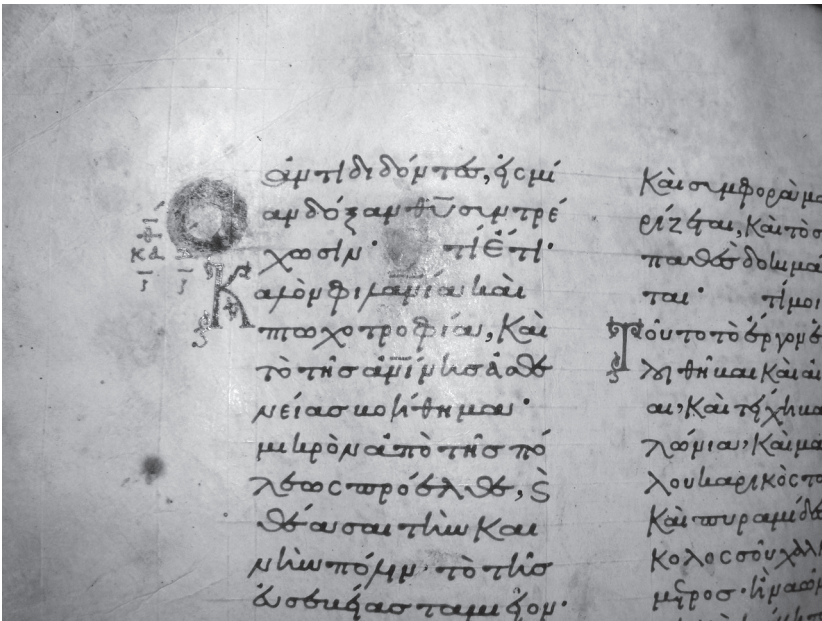 ἀντιδιδόντες, εἰς μί
αν δόξαν θ̅υ̅ συντρέ
χωσιν· τί ἔτι·
Καλὸν φιλανία καὶ
πτωχοτροφία, καὶ
τὸ τῆς ἀνίνης ἀσθε
νείας βοήθημα·
μικρὸν ἀπὸ τῆς πό
λεως πρόελθε, ϗ
θέασαι τὴν και
νὴν πόλιν· τὸ τῆς
εὐσεβείας ταμεῖον·
καὶ συμφορὰ μα
ρίζεται, καὶ τὸ σ
παθὲς δοκιμά
ται· τί μοι
Τοῦτο τὸ ἔργον ἑ
λοι θῆβαι καὶ αἰ
αι, καὶ τείχη βα
λώνια, καὶ μα
λου καρικὸς τα
καὶ πυραμίδε
κολοσσοῦ χαλκ
μετρος· ἢ ναῶν